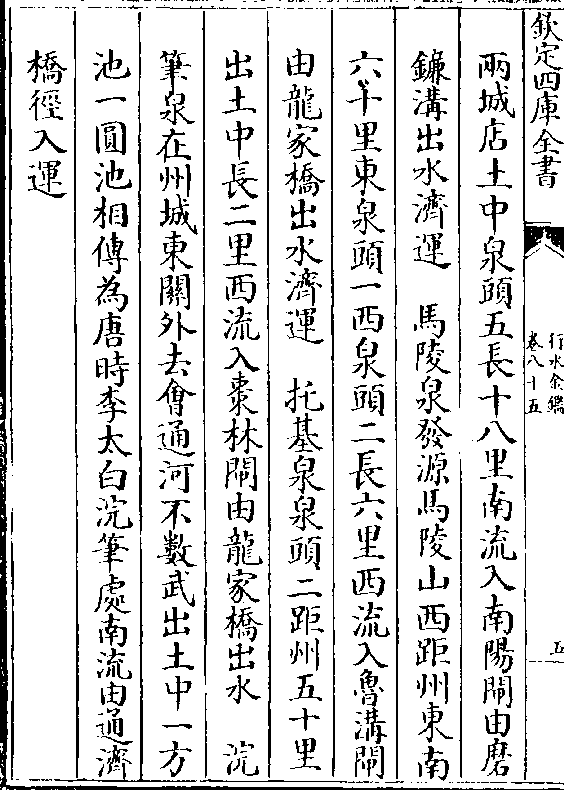 欽定四庫全書
行水金鑑
卷八十五
五
兩城店土中泉頭五長十八里南流入南陽閘由磨
鐮溝出水濟運　馬陵泉發源馬陵山西距州東南
六十里東泉頭一西泉頭二長六里西流入魯溝閘
由龍家橋出水濟運　托基泉泉頭二距州五十里
出土中長二里西流入棗林閘由龍家橋出水　浣
筆泉在州城東關外去會通河不數武出土中一方
池一圓池相傳為唐時李太白浣筆處南流由通濟
橋徑入運